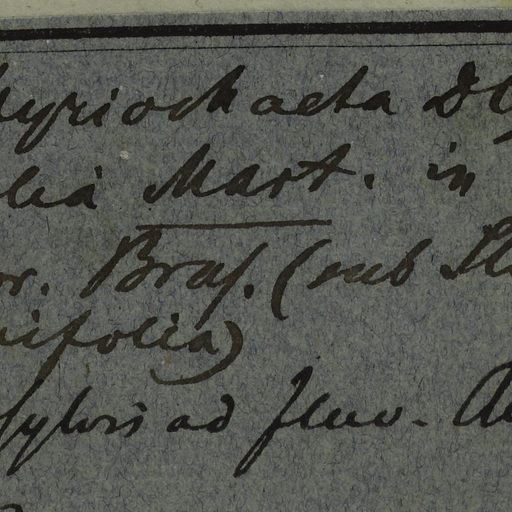 yriochaeta D
lia Mart. in
r. Bras. (sub St
ifolia)
Sylvis ad fluv. A